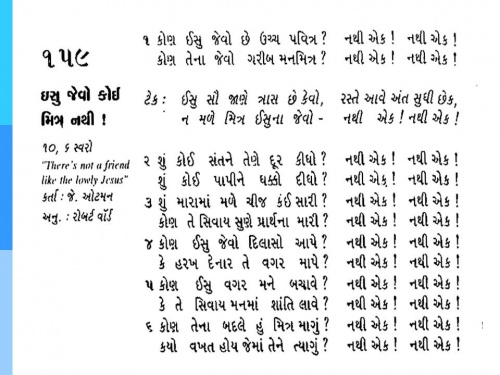 ૧૫૯
ઇસુ જેવો કોઈ
મિત્ર નથી !
૧૦, ૬ સ્વરો
"There's not a friend
like the lowly Jesus"
કર્તા : જે. ઓટમન
અનુ. : રોબર્ટ વૉર્ડ
૧ કોણ ઈસુ જેવો છે ઉચ્ચ પવિત્ર ? નથી એક ! નથી એક !
કોણ તેના જેવો ગરીબ મનમિત્ર ? નથી એક ! નથી એક !
ટેક : ઈસુ સૌ જાણે ત્રાસ છે કેવો, રસ્તે આવે અંત સુધી છેક,
ન મળે મિત્ર ઈસુના જેવો - નથી એક ! નથી એક !
૨ શું કોઈ સંતને તેણે દૂર કીધો ? નથી એક ! નથી એક !
શું કોઈ પાપીને ધક્કો દીધો ? નથી એક ! નથી એક !
૩ શું મારામાં મળે ચીજ કંઈ સારી ? નથી એક ! નથી એક !
કોણ તે સિવાય સુણે પ્રાર્થના મારી ? નથી એક ! નથી એક !
૪ કોણ ઈસુ જેવો દિલાસો આપે ? નથી એક ! નથી એક !
કે હરખ દેનાર તે વગર માપે ? નથી એક ! નથી એક !
૫ કોણ ઈસુ વગર મને બચાવે ? નથી એક ! નથી એક !
કે તે સિવાય મનમાં શાંતિ લાવે ? નથી એક ! નથી એક !
૬ કોણ તેના બદલે હું મિત્ર માગું ? નથી એક ! નથી એક !
કયો વખત હોય જેમાં તેને ત્યાગું ? નથી એક ! નથી એક !